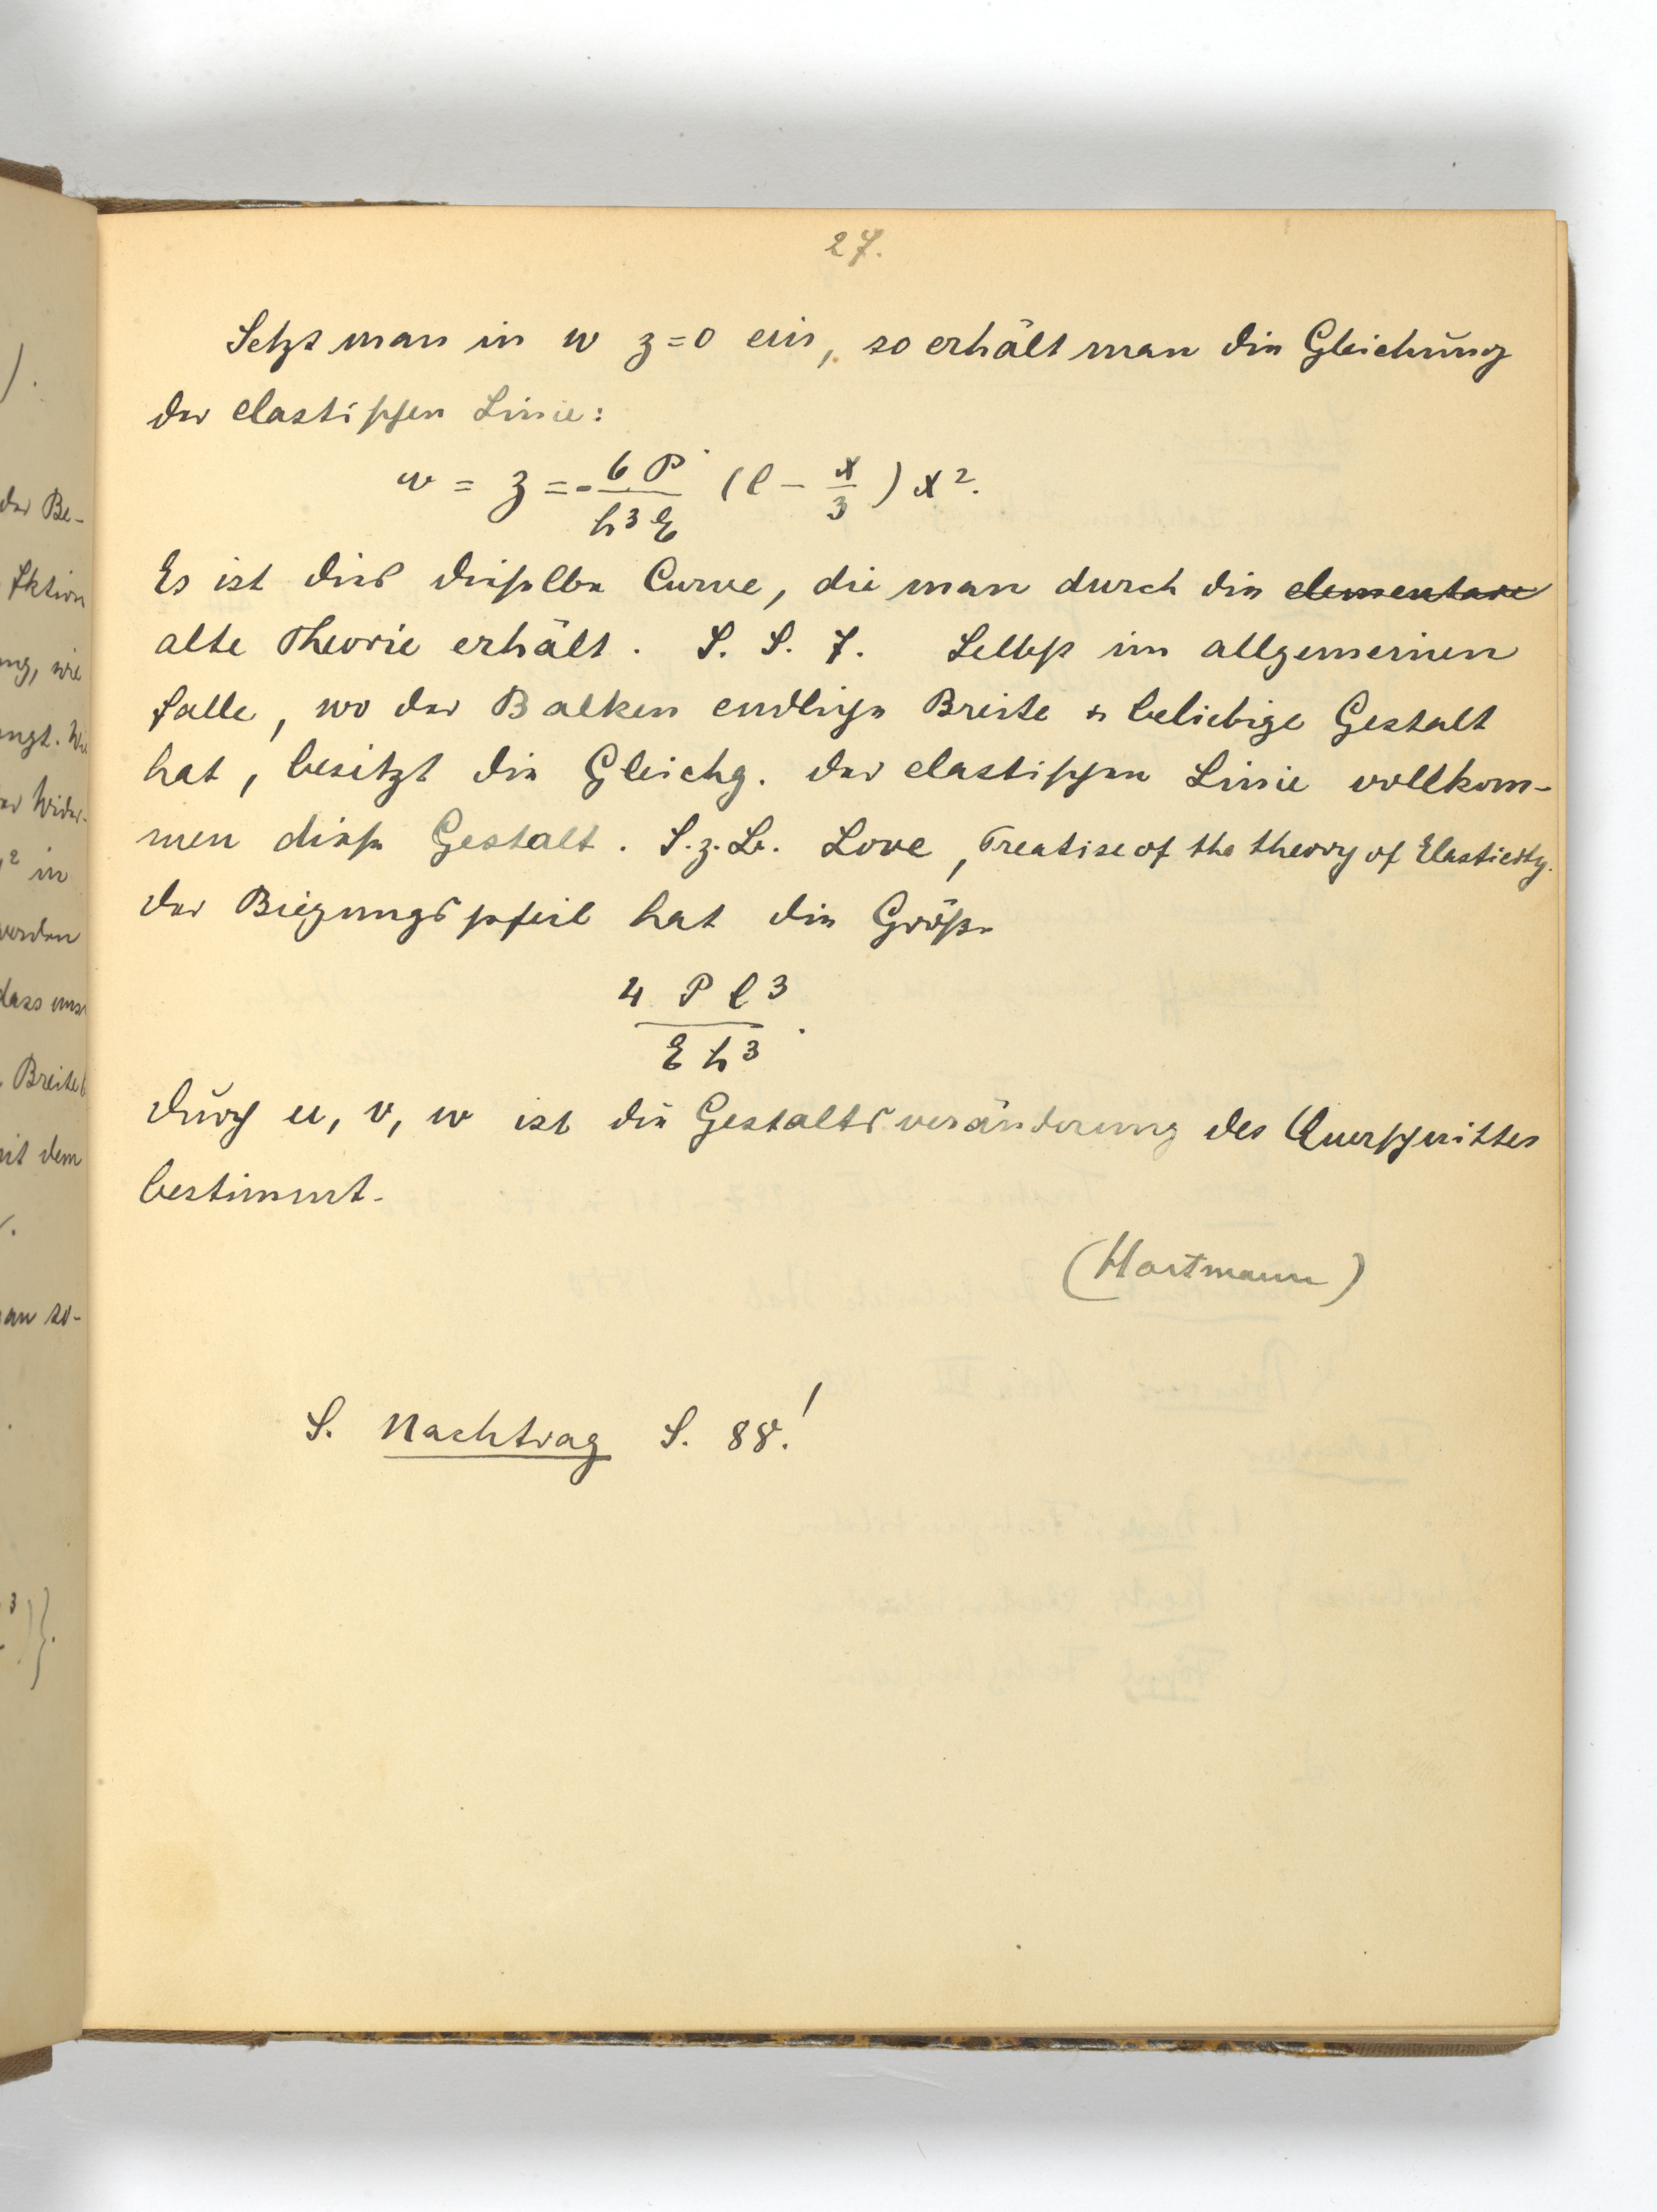 27.
Setzt man in w z=0 ein, so erhält man die Gleichung
der elastischen Linie:
w = z = - 6 P / h³ E (l - x/3) x².
Es ist dies dieselbe Curve, die man durch die elementare
alte Theorie erhält. S. S. 7. Selbst im allgemeinen
Falle, wo der Balken endliche Breite & beliebige Gestalt
hat, besitzt die Gleichg. der elastischen Linie vollkom-
men diese Gestalt. S. z. B. Love, Treatise of the theory of Elasticity.
Der Biegungspfeil hat die Größe
4 P l³ / E h³.
Durch u, v, w ist die Gestaltsveränderung des Querschnittes
bestimmt.
(Hartmann)
S. Nachtrag S. 88!
).
der Be-
fktion
ng, wie
ngt. Wi
er Wider-
² in
werden
dass uns
Breite b
mit dem
an so-
³)}.